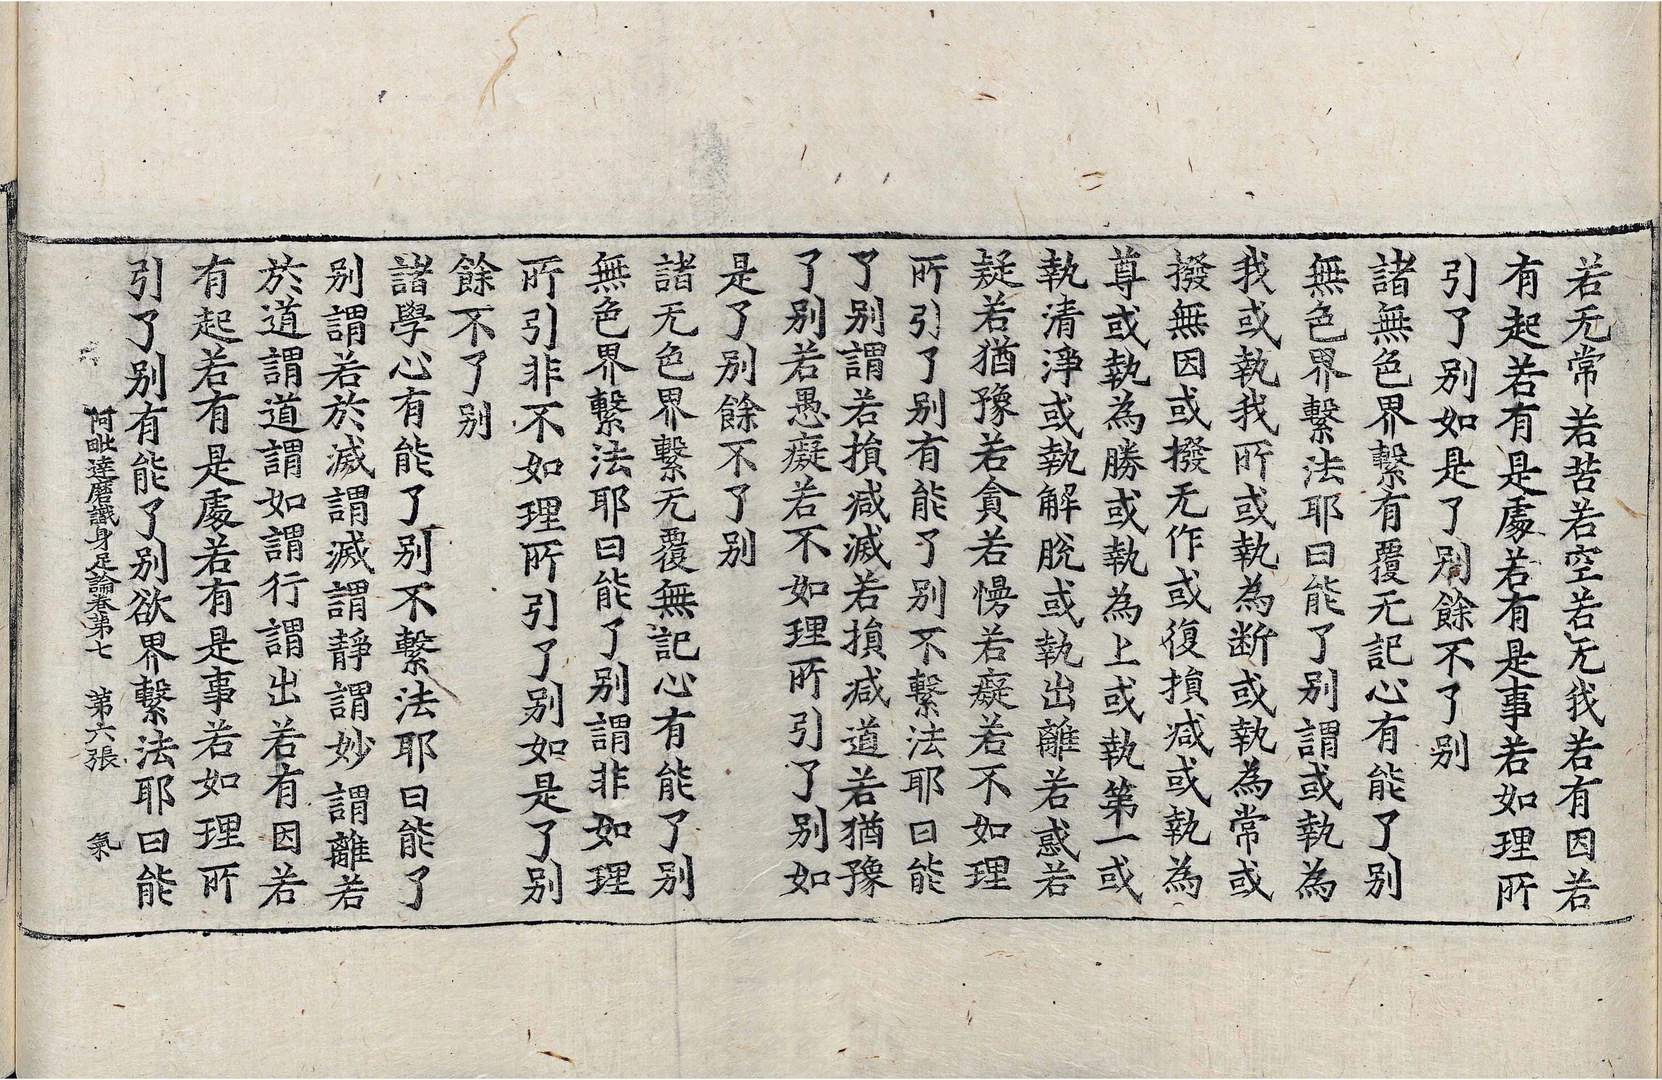 若无常若苦若空若无我若有因若
有起若有是處若有是事若如理所
引了别如是了别餘不了别
諸無色界繫有覆无記心有能了别
無色界繫法耶曰能了别謂或執為
我或執我所或執為断或執為常或
撥無因或撥无作或復損减或執為
尊或執為勝或執為上或執第一或
執清淨或執解脫或執出離若惑若
疑若猶豫若貪若慢若癡若不如理
所引了别有能了别不繫法耶曰能
了别謂若損减滅若損减道若猶豫
了别若愚癡若不如理所引了别如
是了别餘不了别
諸无色界繫无覆無記心有能了别
無色界繫法耶曰能了别謂非如理
所引非不如理所引了别如是了别
餘不了别
諸學心有能了别不繫法耶曰能了
别謂若於滅謂滅謂靜謂妙謂離若
於道謂道謂如謂行謂出若有因若
有起若有是處若有是事若如理所
引了别有能了别欲界繫法耶曰能
阿毗達磨識身足論卷第七 第六張 氣